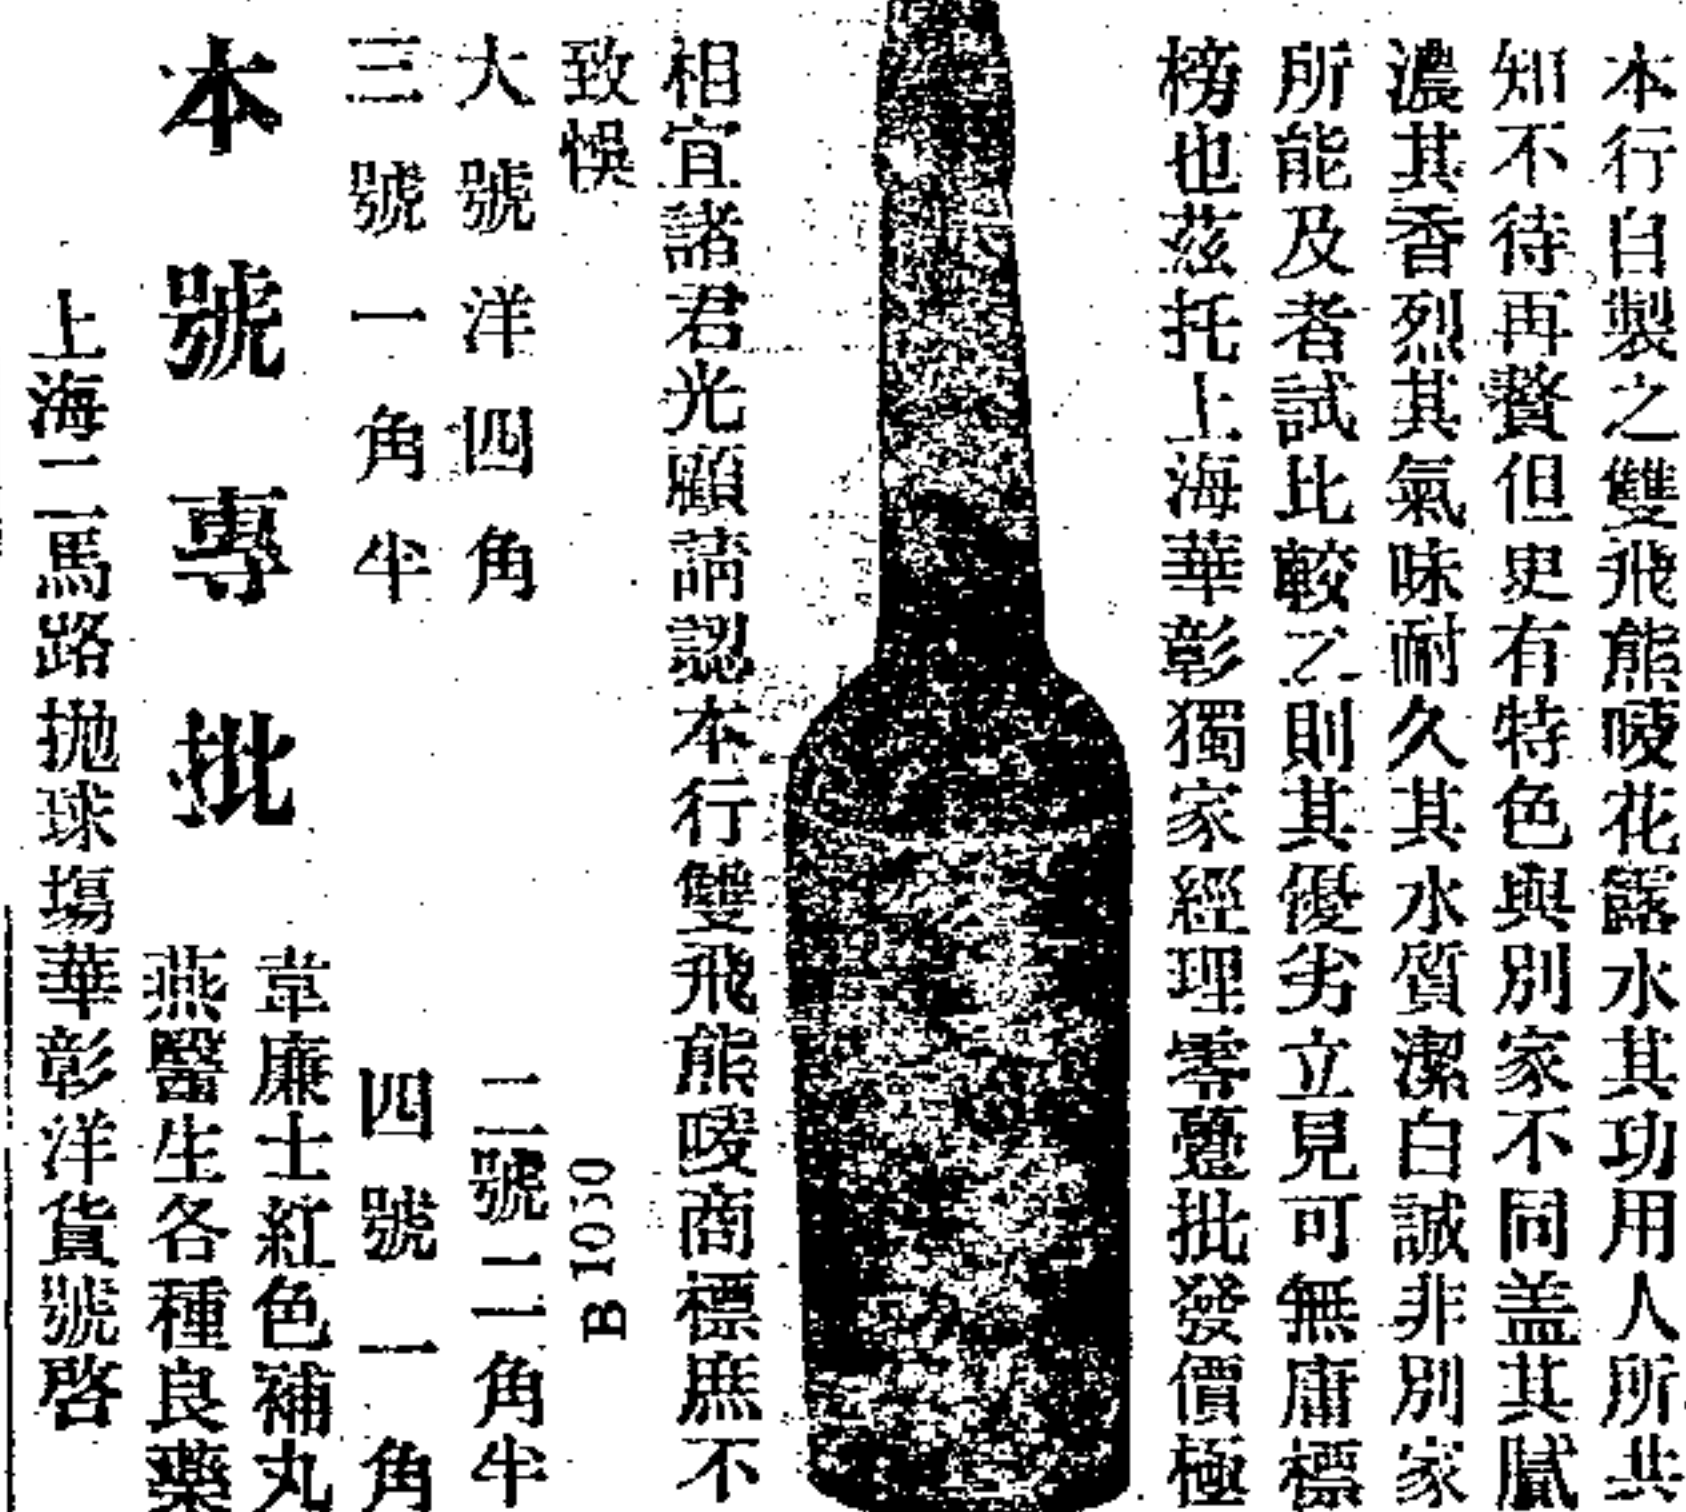 本行自製之雙飛熊唛花露水其功用人所共
知不待再贅但更有特色與別家不同盖其膩
濃其香烈其氣味耐久其水質潔白誠非別家
所能及者試比較之則其優劣立見可無庸標
榜也茲托上海華彰獨家經理零躉批發價極
相宜諸君光顧請認本行雙飛熊唛商標庶不
致悞
B 1050
大號洋四角 二號二角半
三號一角半 四號一角
本號專批
韋廉士紅色補丸
燕醫生各種良藥
上海二馬路抛球塲華彰洋貨號啓